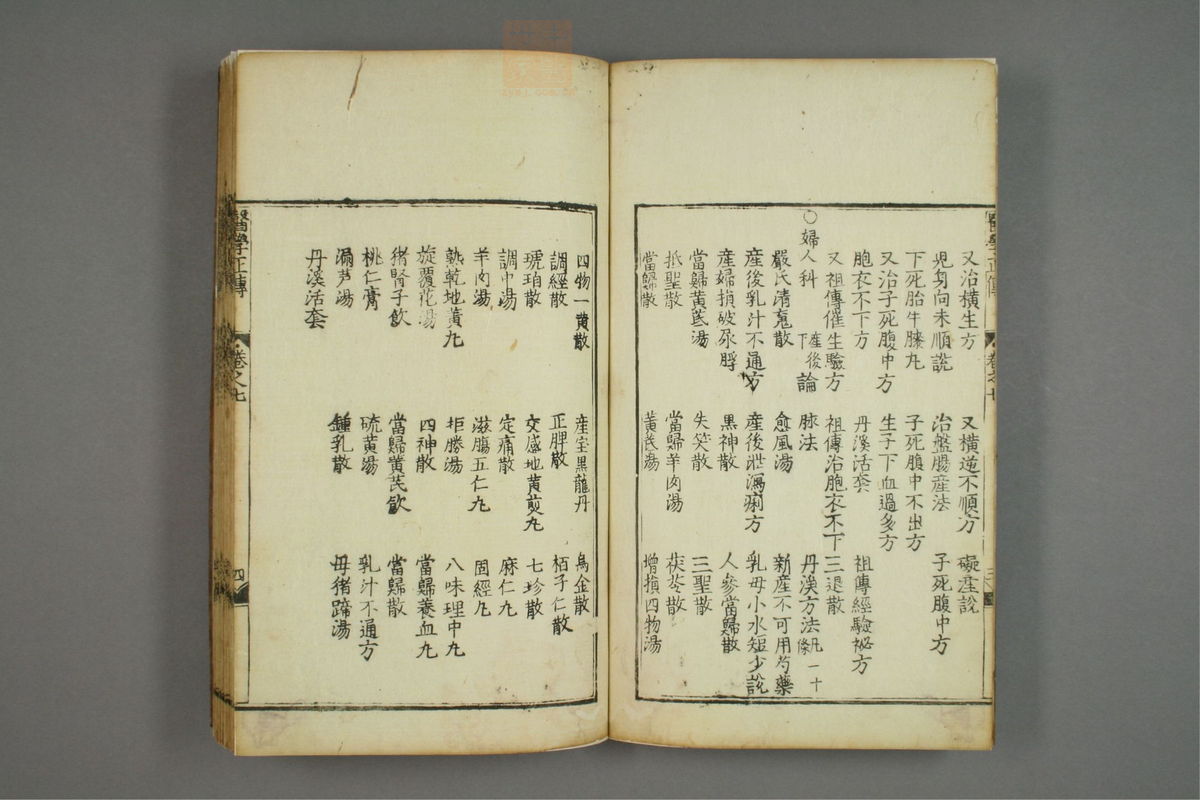 又治横生方 又横逆不順方 礙産說
児身向未順說 治盤膓産法 子死腹中方
下死胎牛膝丸 子死腹中不出方
又治子死腹中方 生子下血過多方
胞衣不下方 丹溪活套 祖傳經驗祕方
又祖傳催生驗方 祖傳治胞衣不下三退散
○婦人科 産後下 論 脉法 丹溪方法凡一十條
嚴氏清䰟散 愈風湯 新産不可用芍藥
産後乳汁不通方 産後泄瀉痢方 乳母小水短少說
産婦損破尿脬 黒神散 人參當歸散
當歸黄茋湯 失笑散 三聖散
抵聖散 當歸羊肉湯 茯苓散
當歸散 黄芪湯 增損四物湯
四物一黄散 産宝黒龍丹 烏金散
調經散 正脾散 栢子仁散
琥珀散 交感地黄煎丸 七珍散
調中湯 定痛散 麻仁丸
羊肉湯 滋膓五仁丸 固經丸
熟乾地黄丸 拒勝湯 八味理中丸
旋覆花湯 四神散 當歸養血丸
猪腎子飲 當歸黄芪飲 當歸散
桃仁膏 硫黄湯 乳汁不通方
漏芦湯 鍾乳散 母猪蹄湯
丹溪活套
醫學正傳 卷之七 四